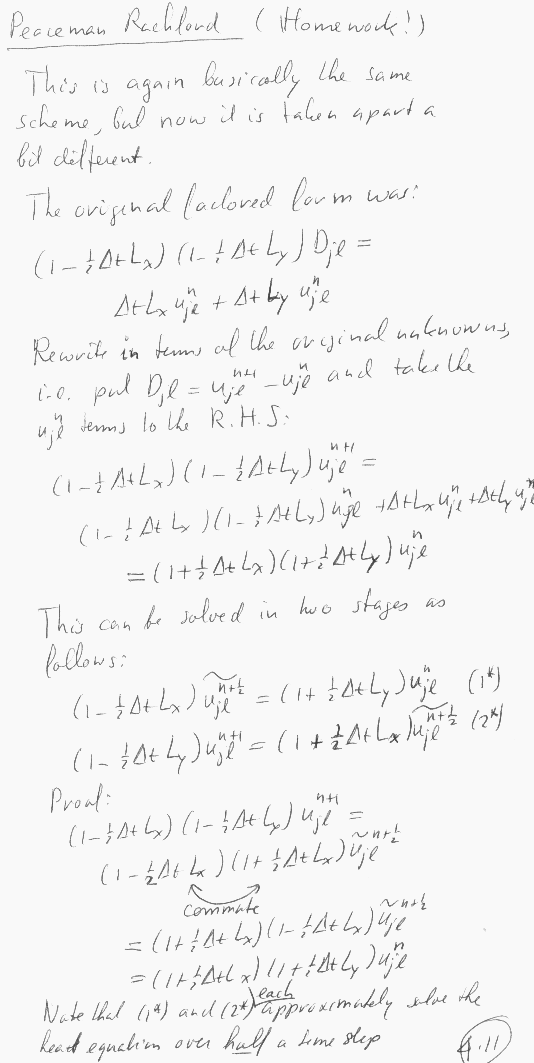 Peaceman Rachford ( Homework! )
This is again basically the same
scheme, but now it is taken apart a
bit different.
The original factored form was:
(1-½ΔtLₓ) (1-½ΔtL_y) D_jl =
ΔtLₓ u_jl^n + ΔtL_y u_jl^n
Rewrite in terms of the original unknowns,
i.e. put D_jl = u_jl^{n+1} - u_jl^n and take the
u_jl^n terms to the R.H.S:
(1-½ΔtLₓ) (1-½ΔtL_y) u_jl^{n+1} =
(1-½ΔtLₓ)(1-½ΔtL_y) u_jl^n + ΔtLₓ u_jl^n + ΔtL_y u_jl^n
= (1+½ΔtLₓ)(1+½ΔtL_y) u_jl^n
This can be solved in two stages as
follows:
(1-½ΔtLₓ) ũ_jl^{n+½} = (1+½ΔtL_y) u_jl^n (1*)
(1-½ΔtL_y) u_jl^{n+1} = (1+½ΔtLₓ) ũ_jl^{n+½} (2*)
Proof:
(1-½ΔtLₓ) (1-½ΔtL_y) u_jl^{n+1} =
(1-½ΔtLₓ) (1+½ΔtLₓ) ũ_jl^{n+½}
commute
= (1+½ΔtLₓ) (1-½ΔtLₓ) ũ_jl^{n+½}
= (1+½ΔtLₓ) (1+½ΔtL_y) u_jl^n
Note that (1*) and (2*) each approximately solve the
heat equation over half a time step
9.11